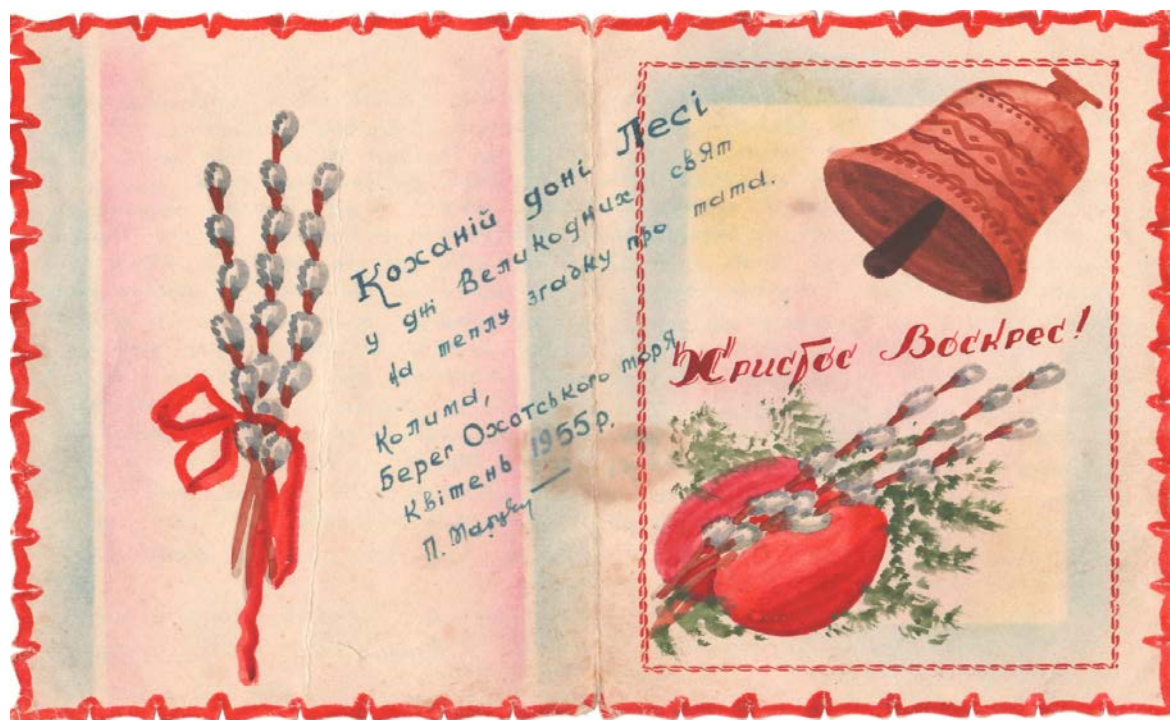 Коханій доні Лесі
у дні Великодних свят
на теплу згадку про тата.
Колима,
Берег Охотського моря
Квітень 1955р.
П.
Христос Воскрес!